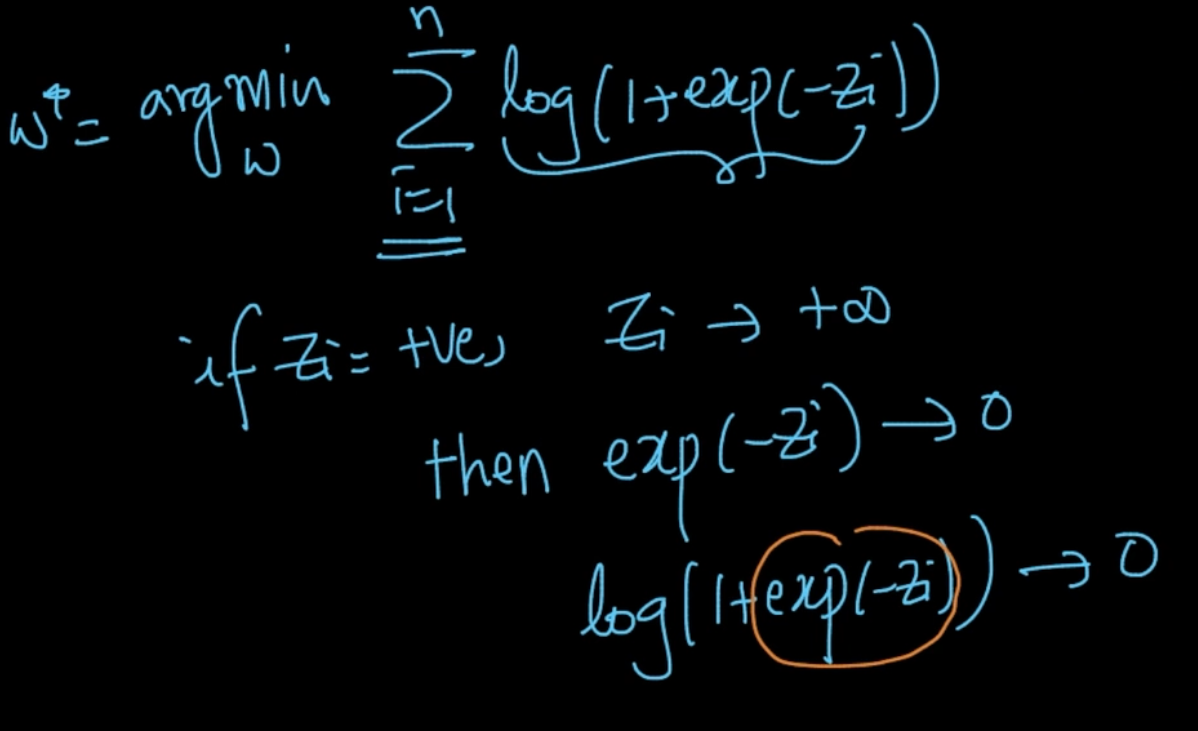 w* = argmin_w Σ_{i=1}^{n} log(1+exp(-Zi))
if Zi = +ve, Zi → +∞
then exp(-Zi) → 0
log(1+exp(-Zi)) → 0